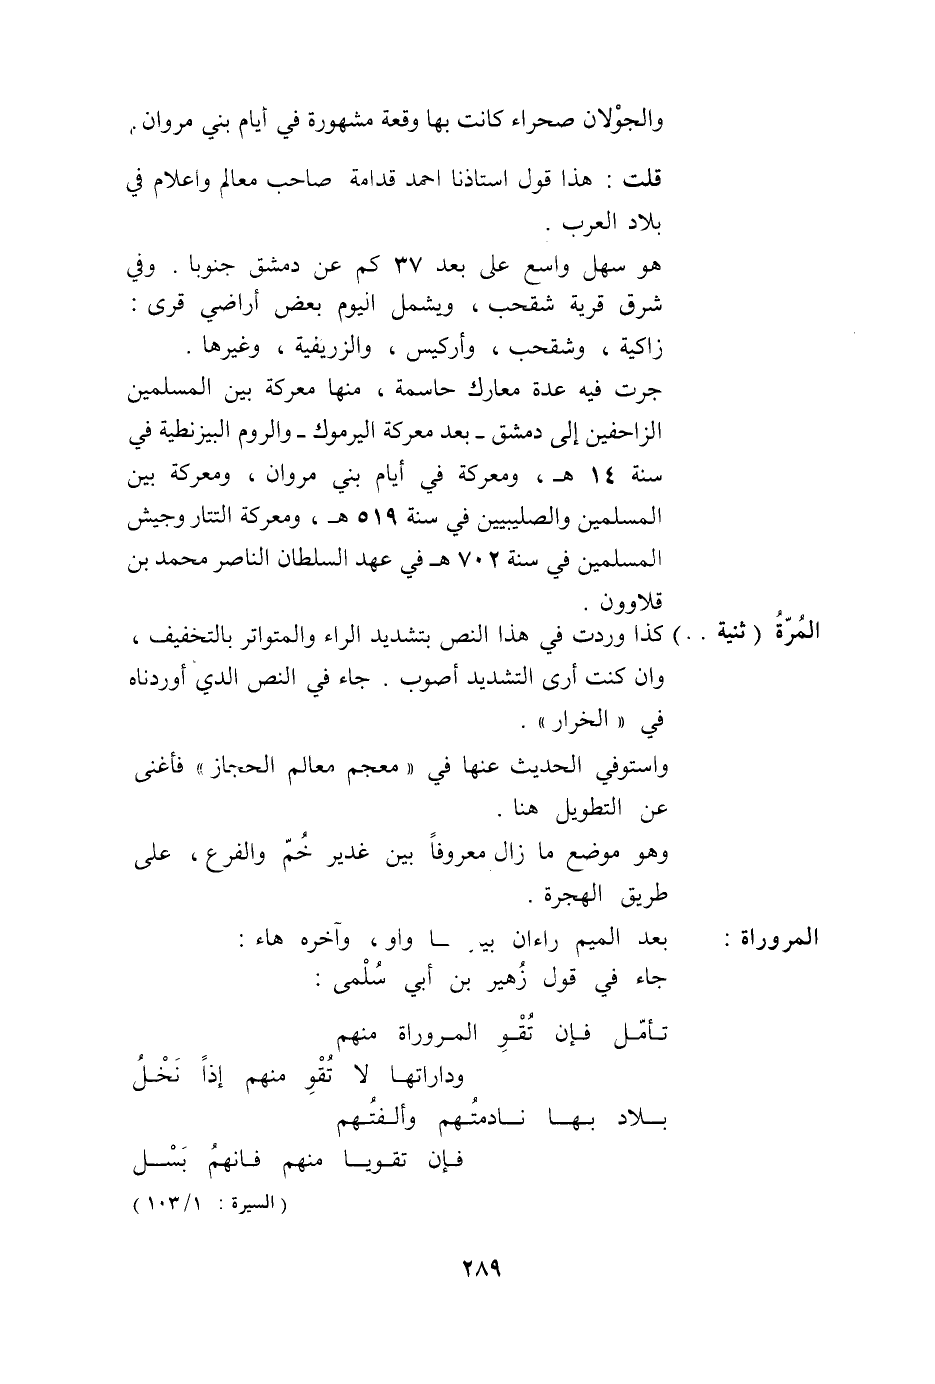 والجوْلان صحراء كانت بها وقعة مشهورة في أيام بني مروان.
قلت : هذا قول استاذنا احمد قدامة صاحب معالم واعلام في
بلاد العرب .
هو سهل واسع على بعد ٣٧ كم عن دمشق جنوبا . وفي
شرق قرية شقحب ، ويشمل اليوم بعض أراضي قرى :
زاكية ، وشقحب ، وأركيس ، والزريفية ، وغيرها .
جرت فيه عدة معارك حاسمة ، منها معركة بين المسلمين
الزاحفين إلى دمشق ـ بعد معركة اليرموك ـ والروم البيزنطية في
سنة ١٤ هـ ، ومعركة في أيام بني مروان ، ومعركة بين
المسلمين والصليبيين في سنة ٥١٩ هـ ، ومعركة التتار وجيش
المسلمين في سنة ٧٠٢ هـ في عهد السلطان الناصر محمد بن
قلاوون .
المُرّةُ ( ثنية . . ) كذا وردت في هذا النص بتشديد الراء والمتواتر بالتخفيف ،
وان كنت أرى التشديد أصوب . جاء في النص الذي أوردناه
في « الخرار » .
واستوفي الحديث عنها في « معجم معالم الحجاز » فأغنى
عن التطويل هنا .
وهو موضع ما زال معروفاً بين غدير خُمّ والفرع ، على
طريق الهجرة .
المروراة : بعد الميم راءان بيـ ـا واو ، وآخره هاء :
جاء في قول زُهير بن أبي سُلْمى :
تـأمّـل فـإن تُقْـوِ المـروراة منهم
وداراتهـا لا تُقْوِ منهم إذاً نَخْـلُ
بـلاد بهـا نـادمتُـهم وألـفتُـهم
فـإن تقـويـا منهم فـانهمُ بَسْـل
( السيرة : ١٠٣/١ )
٢٨٩